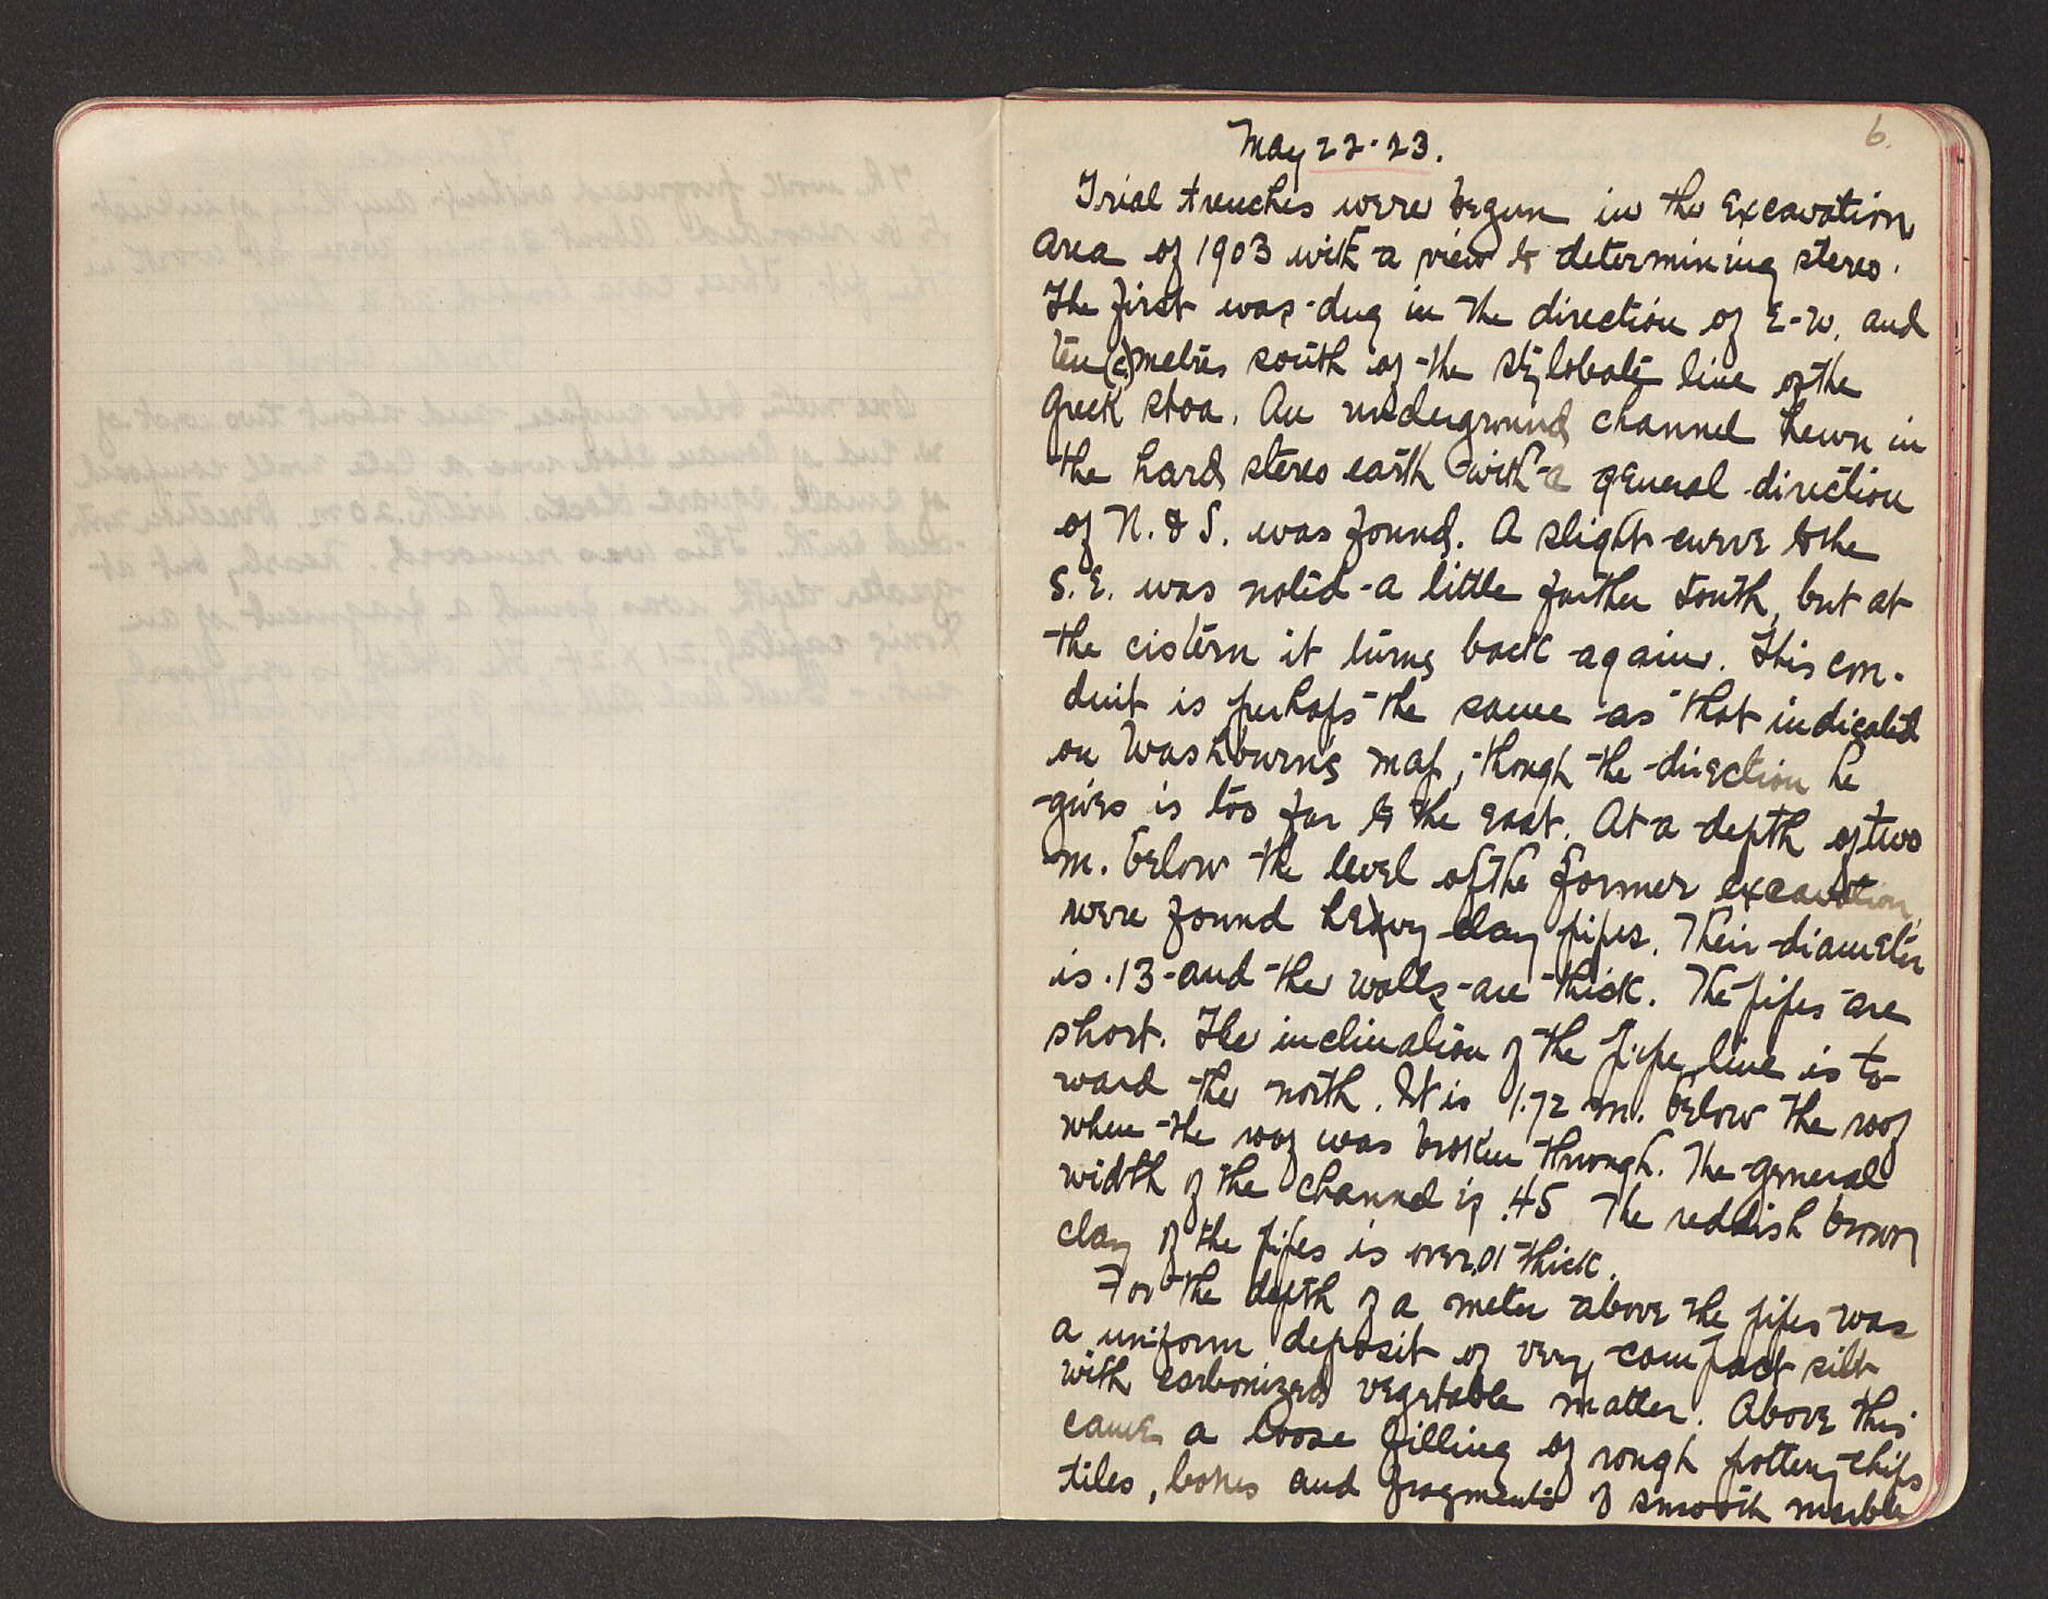 6.
May 22-23.
Trial trenches were begun in the Excavation
Area of 1903 with a view to determining stereo.
The first was dug in the direction of E-W. and
ten (c.) metres south of the stylobate line of the
Greek stoa. An underground channel hewn in
the hard stereo earth with a general direction
of N. & S. was found. A slight curve to the
S.E. was noted a little farther south, but at
the cistern it turns back again. This con-
duit is perhaps the same as that indicated
on Washburn's map, though the direction he
gives is too far to the east. At a depth of two
m. below the level of the former excavation
were found heavy clay pipes. Their diameter
is .13 and the walls are thick. The pipes are
short. The inclination of the pipe line is to-
ward the north. It is 1.72 m. below the roof
where the roof was broken through. The general
width of the channel is .45 The reddish brown
clay of the pipes is over .01 thick.
For the depth of a meter above the pipes was
a uniform deposit of very compact silt
with carbonized vegetable matter. Above this
came a loose filling of rough pottery chips
tiles, bones and fragments of smooth marble